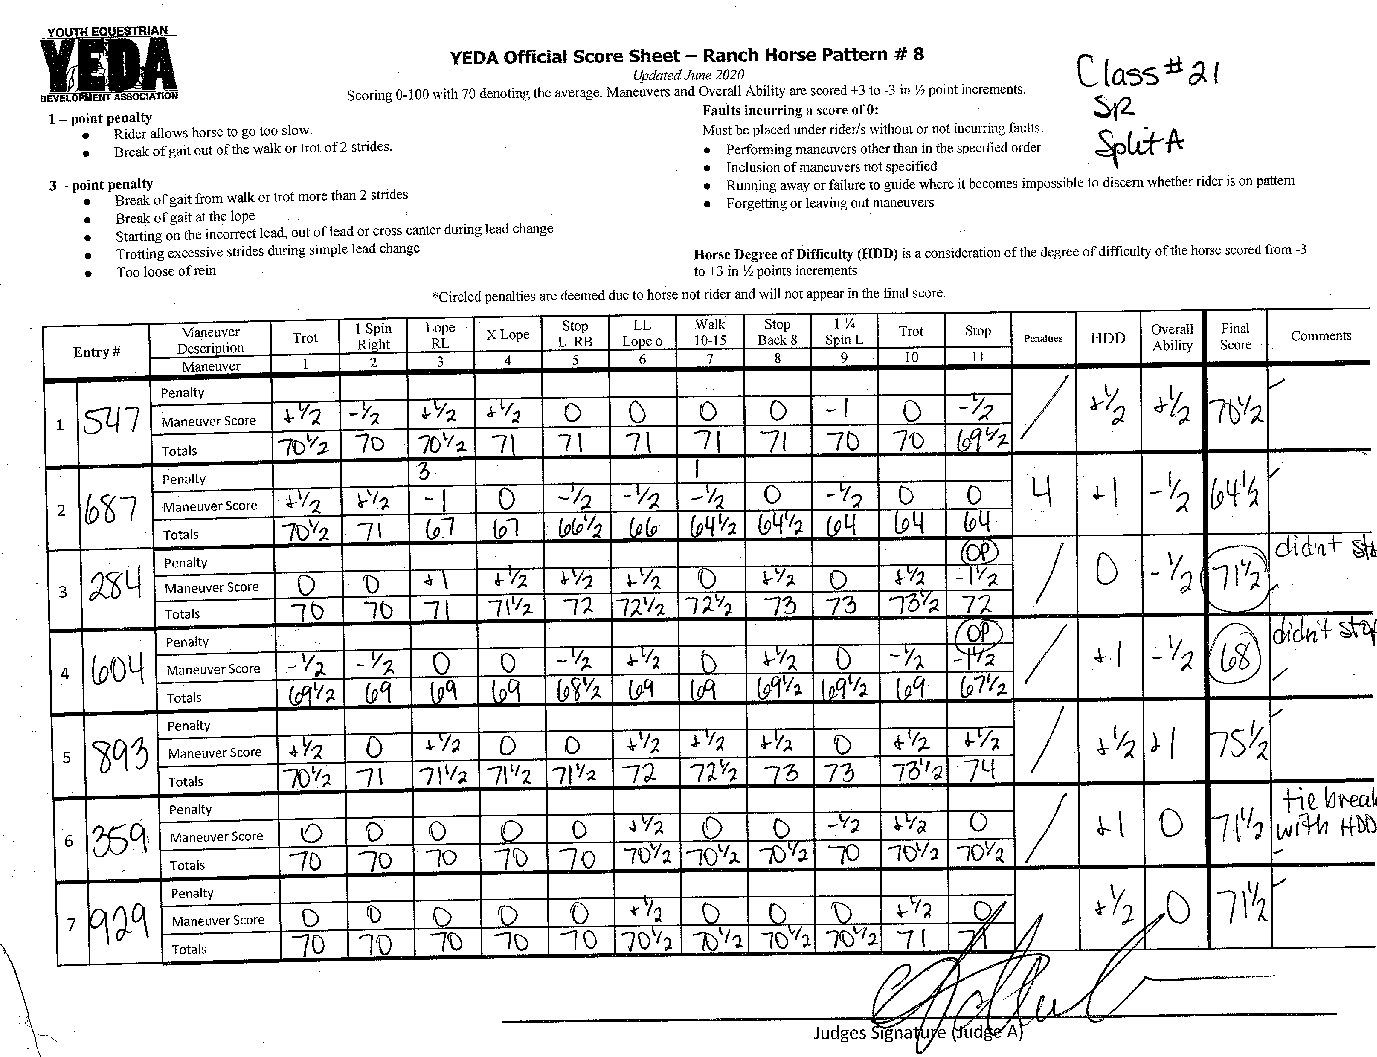 YOUTH EQUESTRIAN
YEDA
DEVELOPMENT ASSOCIATION
YEDA Official Score Sheet – Ranch Horse Pattern # 8
Updated June 2020
Scoring 0-100 with 70 denoting the average. Maneuvers and Overall Ability are scored +3 to -3 in ½ point increments.
Class #21
SR
Split A
1 – point penalty
• Rider allows horse to go too slow.
• Break of gait out of the walk or trot of 2 strides.
3 - point penalty
• Break of gait from walk or trot more than 2 strides
• Break of gait at the lope
• Starting on the incorrect lead, out of lead or cross canter during lead change
• Trotting excessive strides during simple lead change
• Too loose of rein
Faults incurring a score of 0:
Must be placed under rider/s without or not incurring faults.
• Performing maneuvers other than in the specified order
• Inclusion of maneuvers not specified
• Running away or failure to guide where it becomes impossible to discern whether rider is on pattern
• Forgetting or leaving out maneuvers
Horse Degree of Difficulty (HDD) is a consideration of the degree of difficulty of the horse scored from -3
to +3 in ½ points increments
*Circled penalties are deemed due to horse not rider and will not appear in the final score.
Entry # Maneuver Description Trot 1 Spin Right Lope RL X Lope Stop L RB LL Lope o Walk 10-15 Stop Back 8 1 ¼ Spin L Trot Stop Penalties HDD Overall Ability Final Score Comments
Maneuver 1 2 3 4 5 6 7 8 9 10 11
1 547 Penalty /
Maneuver Score +½ -½ +½ +½ 0 0 0 0 -1 0 -½ +½ +½ 70½
Totals 70½ 70 70½ 71 71 71 71 71 70 70 69½
2 687 Penalty 3 1
Maneuver Score +½ +½ -1 0 -½ -½ -½ 0 -½ 0 0 4 +1 -½ 64½
Totals 70½ 71 67 67 66½ 66 64½ 64½ 64 64 64
3 284 Penalty OP / didn't
Maneuver Score 0 0 +1 +½ +½ +½ 0 +½ 0 +½ -1½ 0 -½ 71½
Totals 70 70 71 71½ 72 72½ 72½ 73 73 73½ 72
4 604 Penalty OP / didn't stop
Maneuver Score -½ -½ 0 0 -½ +½ 0 +½ 0 -½ -1½ +1 -½ 68
Totals 69½ 69 69 69 68½ 69 69 69½ 69½ 69 67½
5 893 Penalty /
Maneuver Score +½ 0 +½ 0 0 +½ +½ +½ 0 +½ +½ +½ +1 75½
Totals 70½ 71 71½ 71½ 71½ 72 72½ 73 73 73½ 74
6 359 Penalty / tie break
Maneuver Score 0 0 0 0 0 +½ 0 0 -½ +½ 0 +1 0 71½ with HDD
Totals 70 70 70 70 70 70½ 70½ 70½ 70 70½ 70½
7 929 Penalty
Maneuver Score 0 0 0 0 0 +½ 0 0 0 +½ 0 +½ 0 71½
Totals 70 70 70 70 70 70½ 70½ 70½ 70½ 71 71
Judges Signature (Judge A)